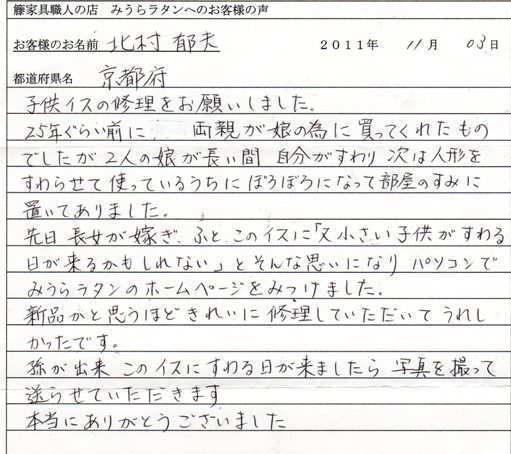 籐家具職人の店　みうらラタンへのお客様の声
お客様のお名前 北村 郁夫 2011年 11月 03日
都道府県名 京都府
子供イスの修理をお願いしました。
25年ぐらい前に 両親が娘の為に買ってくれたもの
でしたが2人の娘が長い間 自分がすわり 次は人形を
すわらせて使っているうちにぼろぼろになって部屋のすみに
置いてありました。
先日 長女が嫁ぎ、ふと、このイスに「又小さい子供がすわる
日が来るかもしれない」とそんな思いになり パソコンで
みうらラタンのホームページをみつけました。
新品かと思うほどきれいに修理していただいてうれし
かったです。
孫が出来 このイスにすわる日が来ましたら 写真を撮って
送らせていただきます
本当にありがとうございました